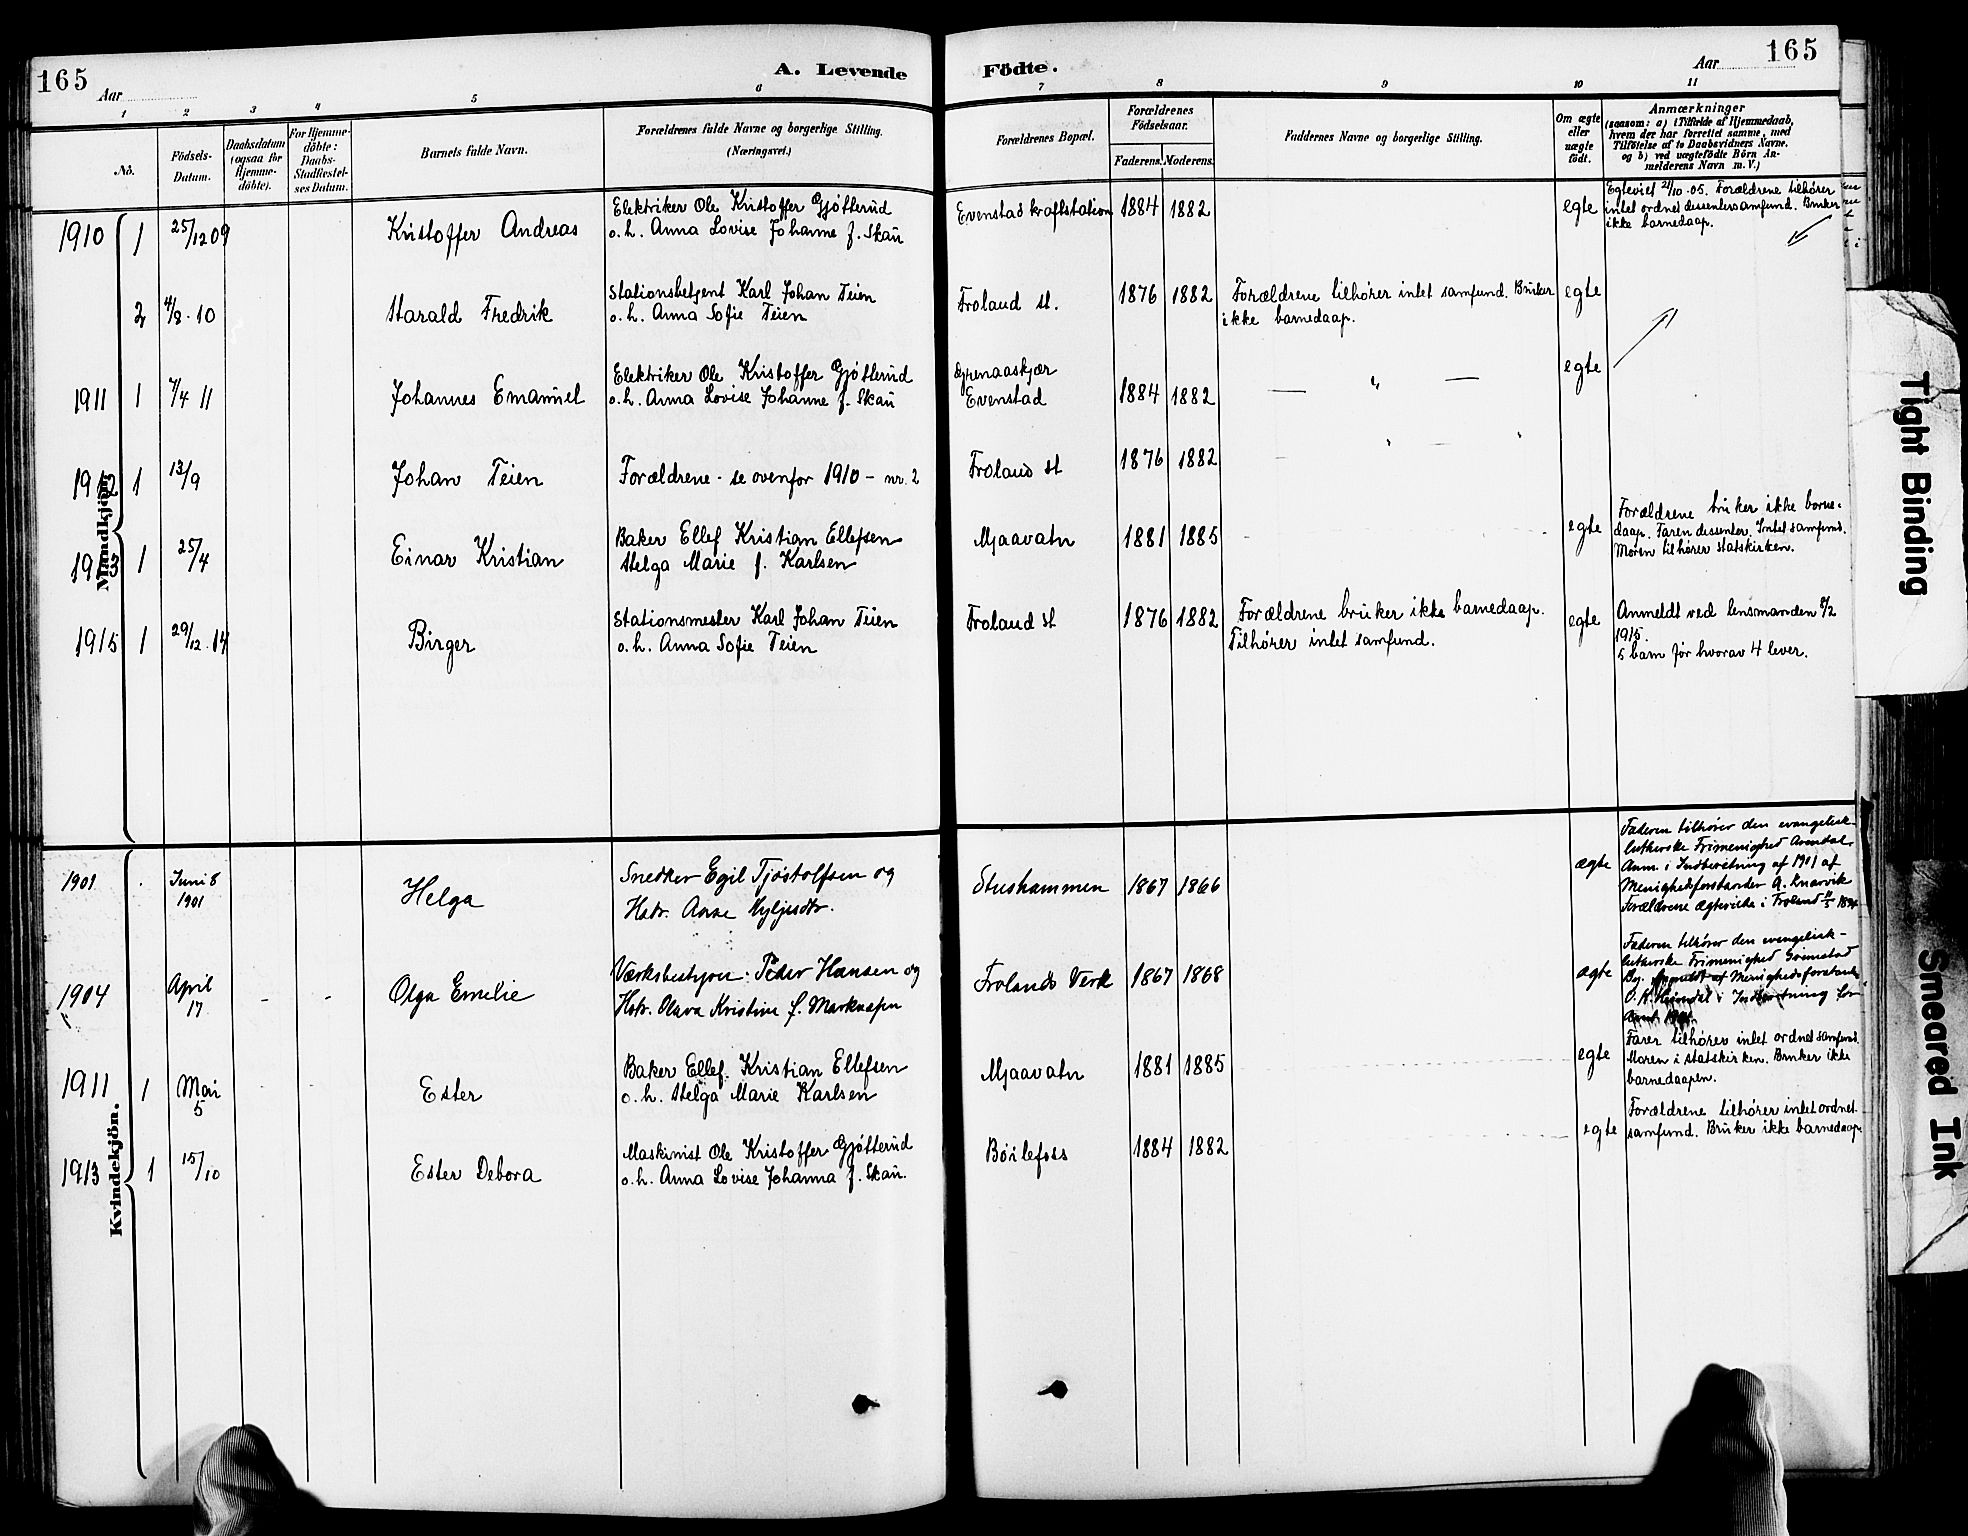 165
Aar
A. Levende
Födte.
Aar
165
1 2 3 4 5 6 7 8 9 10 11
No.
Födsels-
Datum.
Daabsdatum
(ogsaa for
Hjemme-
döbte).
For Hjemme-
döbte:
Daabs-
Stadfæstel-
ses Datum.
Barnets fulde Navn.
Forældrenes fulde Navne og borgerlige Stilling.
(Næringsvei.)
Forældrenes Bopæl.
Forældrenes
Födselsaar.
Faderens. Moderens.
Faddernes Navne og borgerlige Stilling.
Om ægte
eller
uægte
födt.
Anmærkninger
(saasom: a) i Tilfælde af Hjemmedaab,
hvem der har forrettet samme, med
Tilföielse af to Daabsvidners Navne.
og b) ved uægtefödte Börn An-
melderens Navn m. V.)
Mandkjön.
1910 1 25/12 09 Kristoffer Andreas
Elektriker Ole Kristoffer Gjøtterud
o. h. Anna Lovise Johanne f. Skau
Evenstad kraftstation 1884 1882 egte
Egteviet 21/10 -05. Forældrene tilhører
intet ordnet dissentersamfund. Bruker
ikke barnedaap.
2 4/8 - 10 Harald Fredrik
Stationsbetjent Karl Johan Teien
o. h. Anna Sofie Teien
Froland st. 1876 1882
Forældrene tilhører intet samfund. Bruker
ikke barnedaap.
egte
1911 1 7/4 11 Johannes Emanuel
Elektriker Ole Kristoffer Gjøtterud
o. h. Anna Lovise Johanne f. Skau
Evenstad 1884 1882 — " — egte
1912 1 13/9 Johan Teien
Forældrene - se ovenfor 1910 - nr. 2
Froland st 1876 1882
1913 1 25/4 Einar Kristian
Baker Ellef Kristian Ellefsen
Helga Marie f. Karlsen
Mjaavatn 1881 1885 egte
Forældrene bruker ikke barne-
daap. Faren dissenter. Intet samfund.
Moren tilhører statskirken.
1915 1 29/12 - 14 Birger
Stationsmester Karl Johan Teien
o. h. Anna Sofie Teien
Froland st 1876 1882
Forældrene bruker ikke barnedaap.
Tilhører intet samfund.
egte
Anmeldt ved lensmanden /2
1915.
5 barn før hvorav 4 lever.
Kvindekjön.
1901 Juni 8
1901
Helga
Snedker Egil Tjöstolfsen og
Hstr. Anne
1867 1866 ægte
Faderen tilhører den evangelisk-
lutherske Frimenighed Arendal.
Anm. i Indberetning af 1901 af
Menighedsforstander A. Knarvik
Forældrene ægteviede i Froland
1904 April
17
Olga Emilie
Værksbestyrer Peder Hansen og
Hstr. Olava Kristine f.
Frolands Verk 1867 1868 ægte
Faderen tilhører den evangelisk-
lutherske Frimenighed Grimstad
Menighedsforstand.
i Indberetning for
1911 1 Mai
5
Ester
Baker Ellef Kristian Ellefsen
o. h. Helga Marie Karlsen
Mjaavatn 1881 1885 egte
Faren tilhører intet ordnet samfund.
Moren i statskirken. Bruker ikke
barnedaapen.
1913 1 15/10 Ester Debora
Maskinist Ole Kristoffer Gjøtterud
o. h. Anna Lovise Johanna f. Skau.
Bøilefoss 1884 1882 egte
Forældrene tilhører intet ordnet
samfund. Bruker ikke barnedaap.
Tight Binding
Smeared Ink